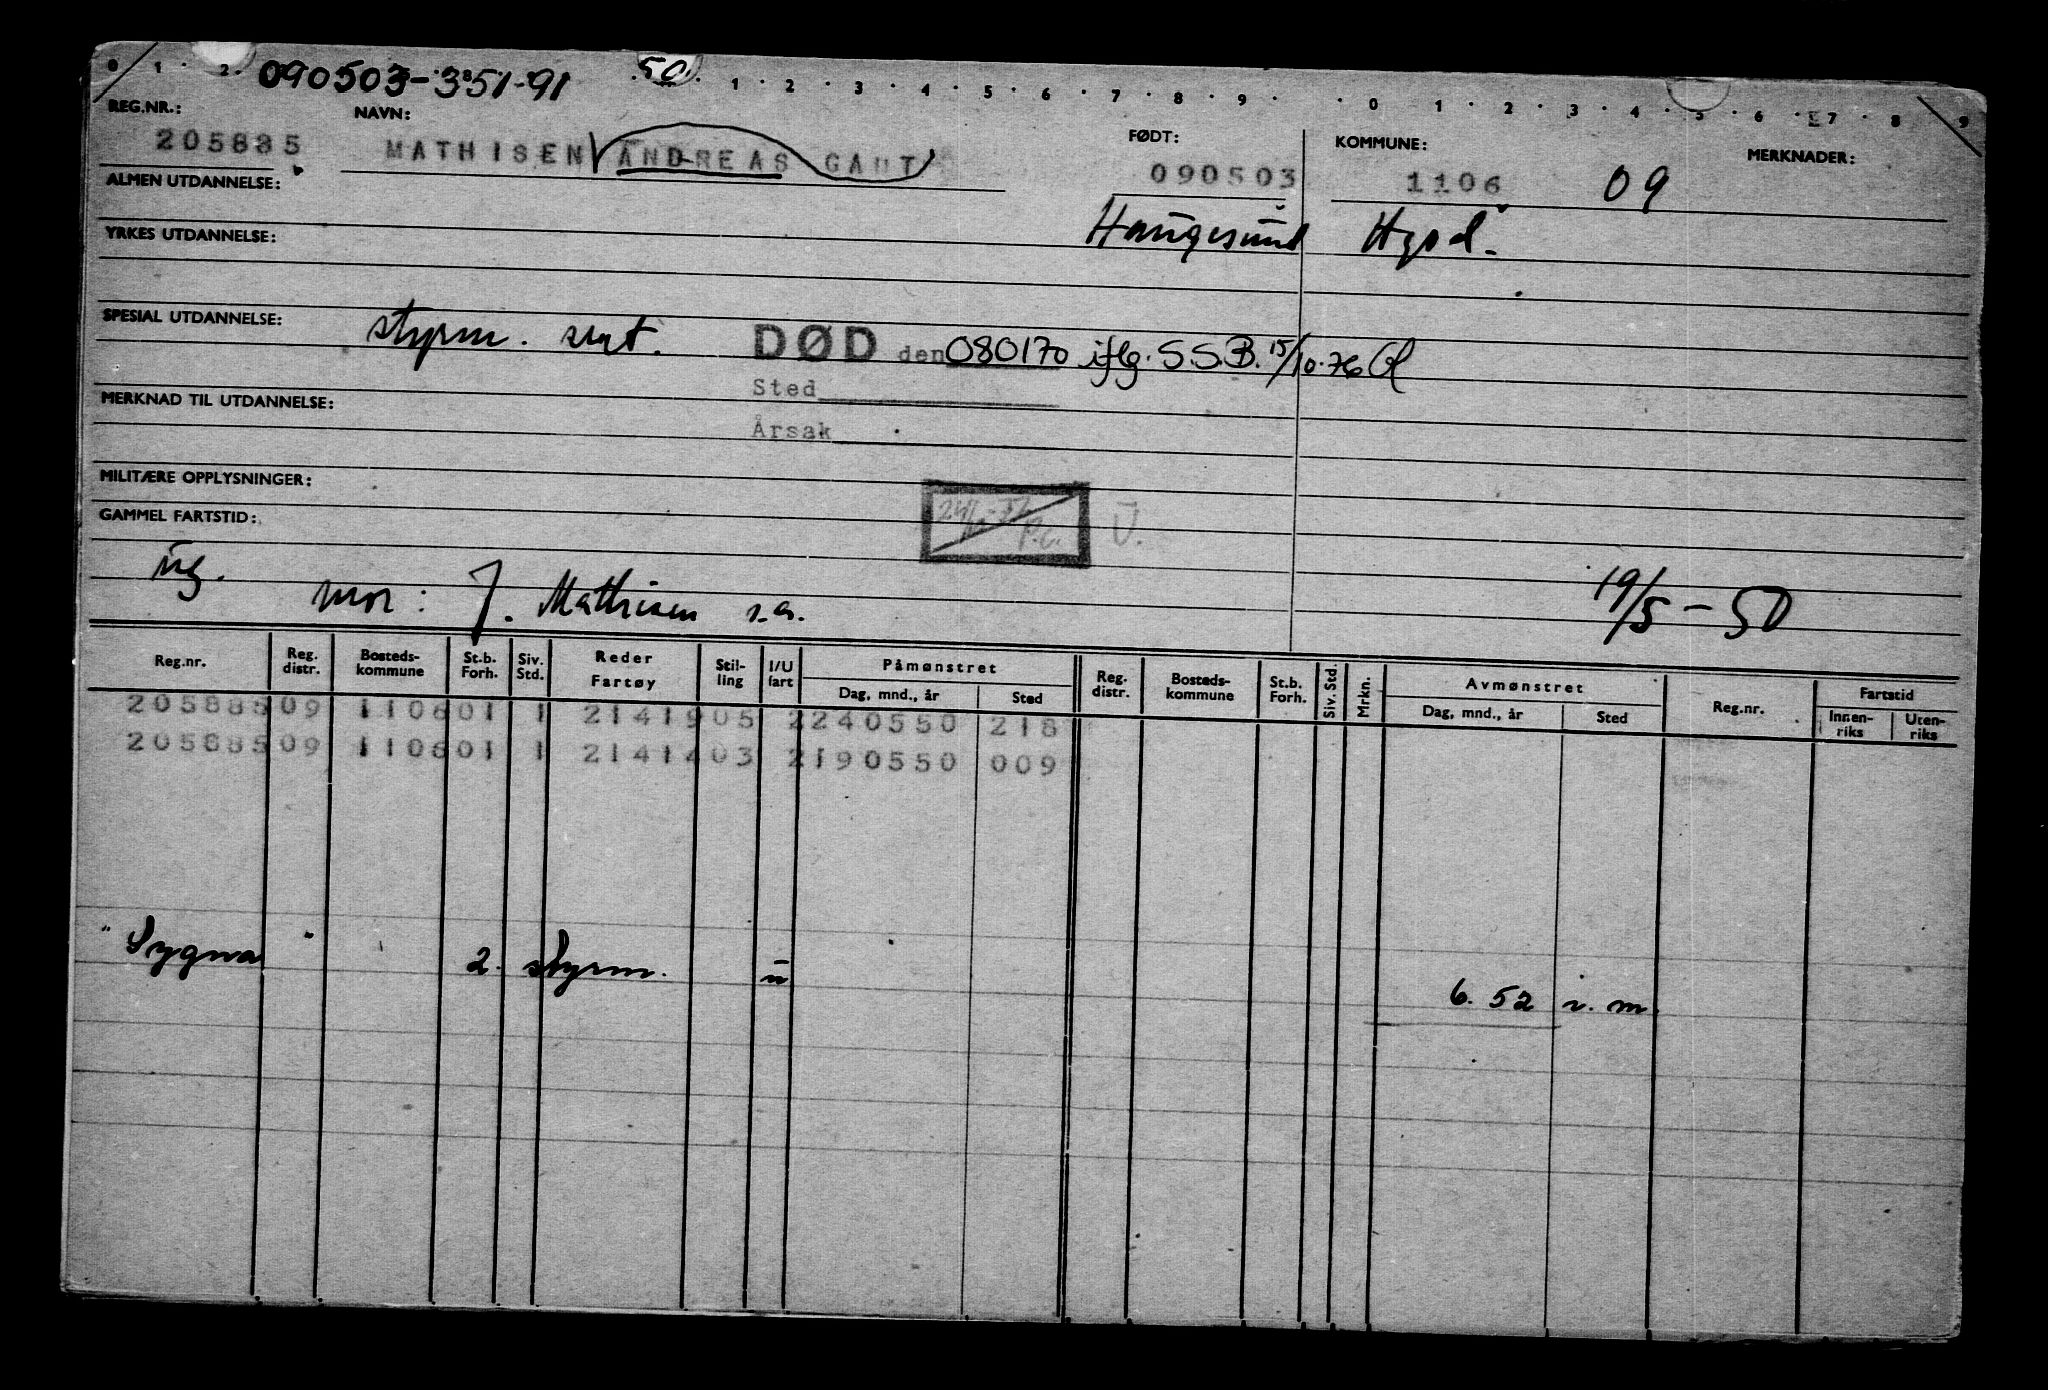 0 1 2 090503-351-91 50. 1 2 3 4 5 6 7 8 9 0 1 2 3 4 5 6 7 8 9
REG.NR.: NAVN: FØDT: KOMMUNE: MERKNADER:
205885 MATHISEN ANDREAS GAUT 090503 1106 09
ALMEN UTDANNELSE:
Haugesund Hgsd.
YRKES UTDANNELSE:
SPESIAL UTDANNELSE: styrm. sert. DØD den 080170 iflg. S.S.B. 15/10-76
Sted
MERKNAD TIL UTDANNELSE:
Årsak
MILITÆRE OPPLYSNINGER:
GAMMEL FARTSTID: P.c. U.
ug. mor: J. Mathisen s.a. 19/5-50
Reg.nr. Reg. distr. Bosteds-kommune St.b. Forh. Siv. Std. Reder Fartøy Stil-ling I/U fart Påmønstret Dag, mnd., år Sted Reg. distr. Bosteds-kommune St.b. Forh. Siv. Std. Mrkn. Avmønstret Dag, mnd., år Sted Reg.nr. Fartstid Innen-riks Uten-riks
205885 09 1106 01 1 2141905 2240550 218
205885 09 1106 01 1 2141403 2190550 009
"Sygna" 2. styrm. u 6. 52 i. m.